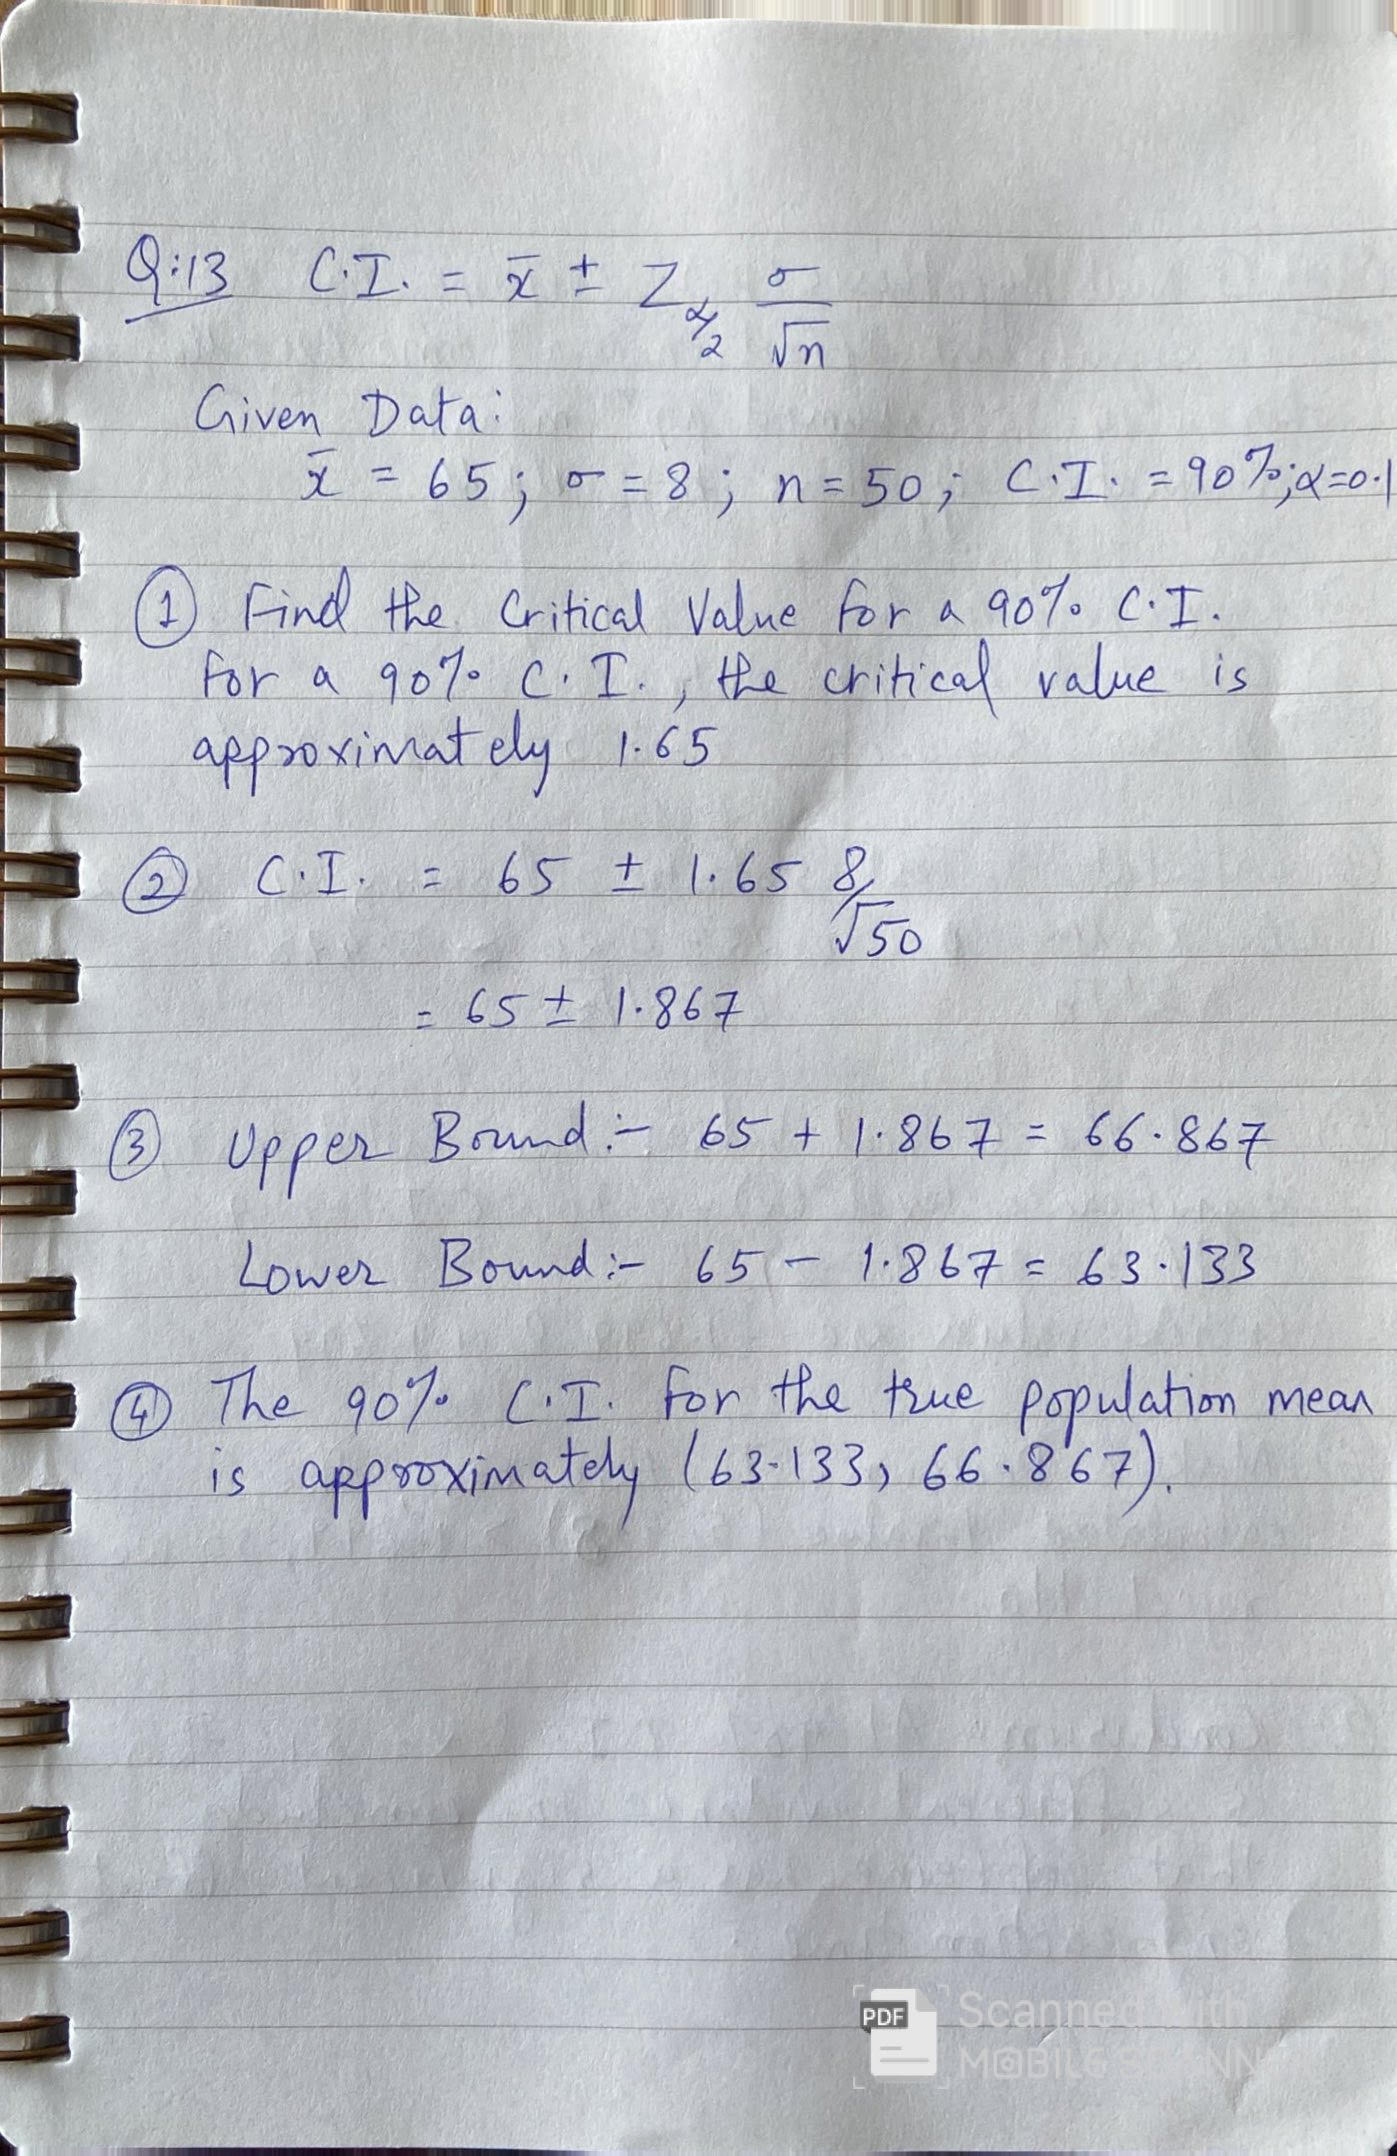 Q:13 C.I. = x̄ ± Z α/2 σ/√n
Given Data:
x̄ = 65; σ = 8; n = 50; C.I. = 90%; α=0.1
① Find the Critical Value for a 90% C.I.
for a 90% C.I., the critical value is
approximately 1.65
② C.I. = 65 ± 1.65 8/√50
= 65 ± 1.867
③ Upper Bound:- 65 + 1.867 = 66.867
Lower Bound:- 65 - 1.867 = 63.133
④ The 90% C.I. for the true population mean
is approximately (63.133, 66.867).
PDF Scanned with
MOBILE SCANN